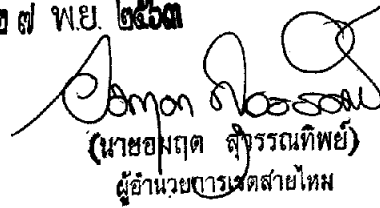 ๒ ๗ พ.ย. ๒๕๖๓
(นายอมฤต สุวรรณทิพย์)
ผู้อำนวยการเขตสายไหม